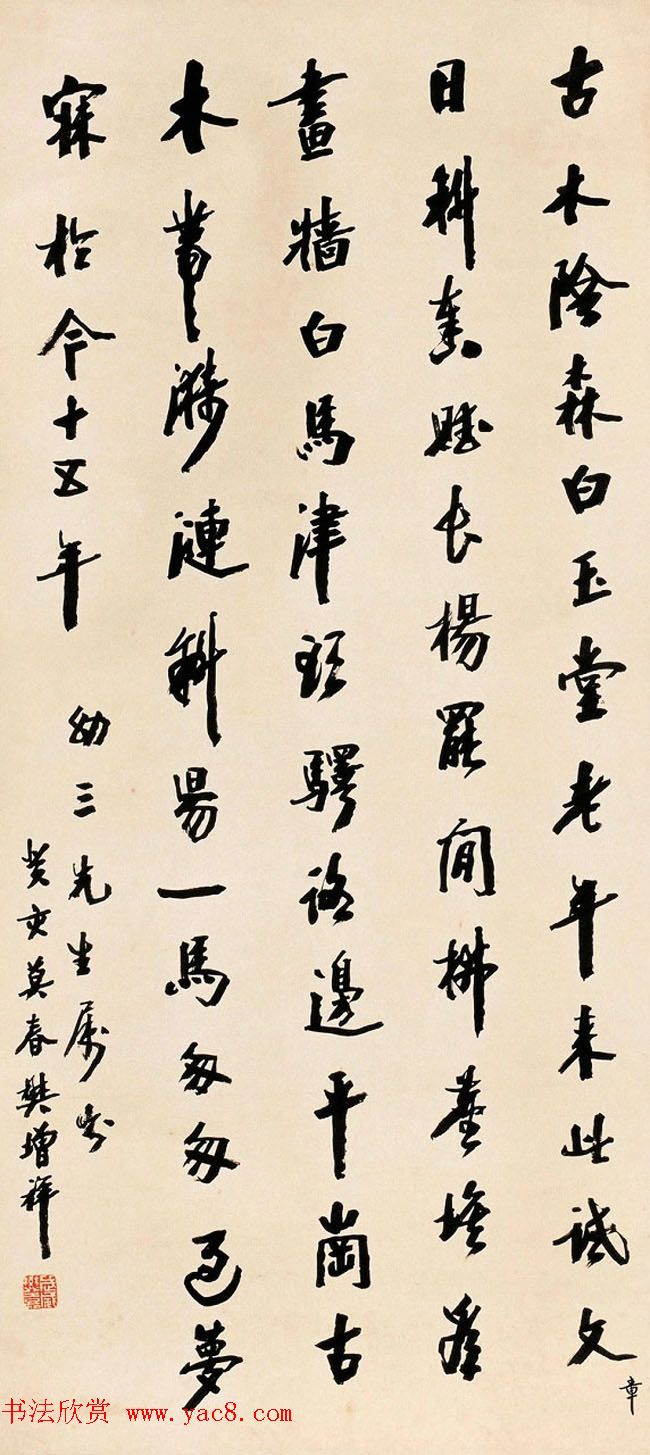 古木陰森白玉堂老年来此試文章
日斜奏賦長楊罷閒拂塵埃看
畫牆白馬津頭驛路邊平崗古
木帶漪漣斜昜一馬匆匆過夢
寐於今十五年
幼三先生屬
癸亥莫春樊增祥
书法欣赏 www.yac8.com